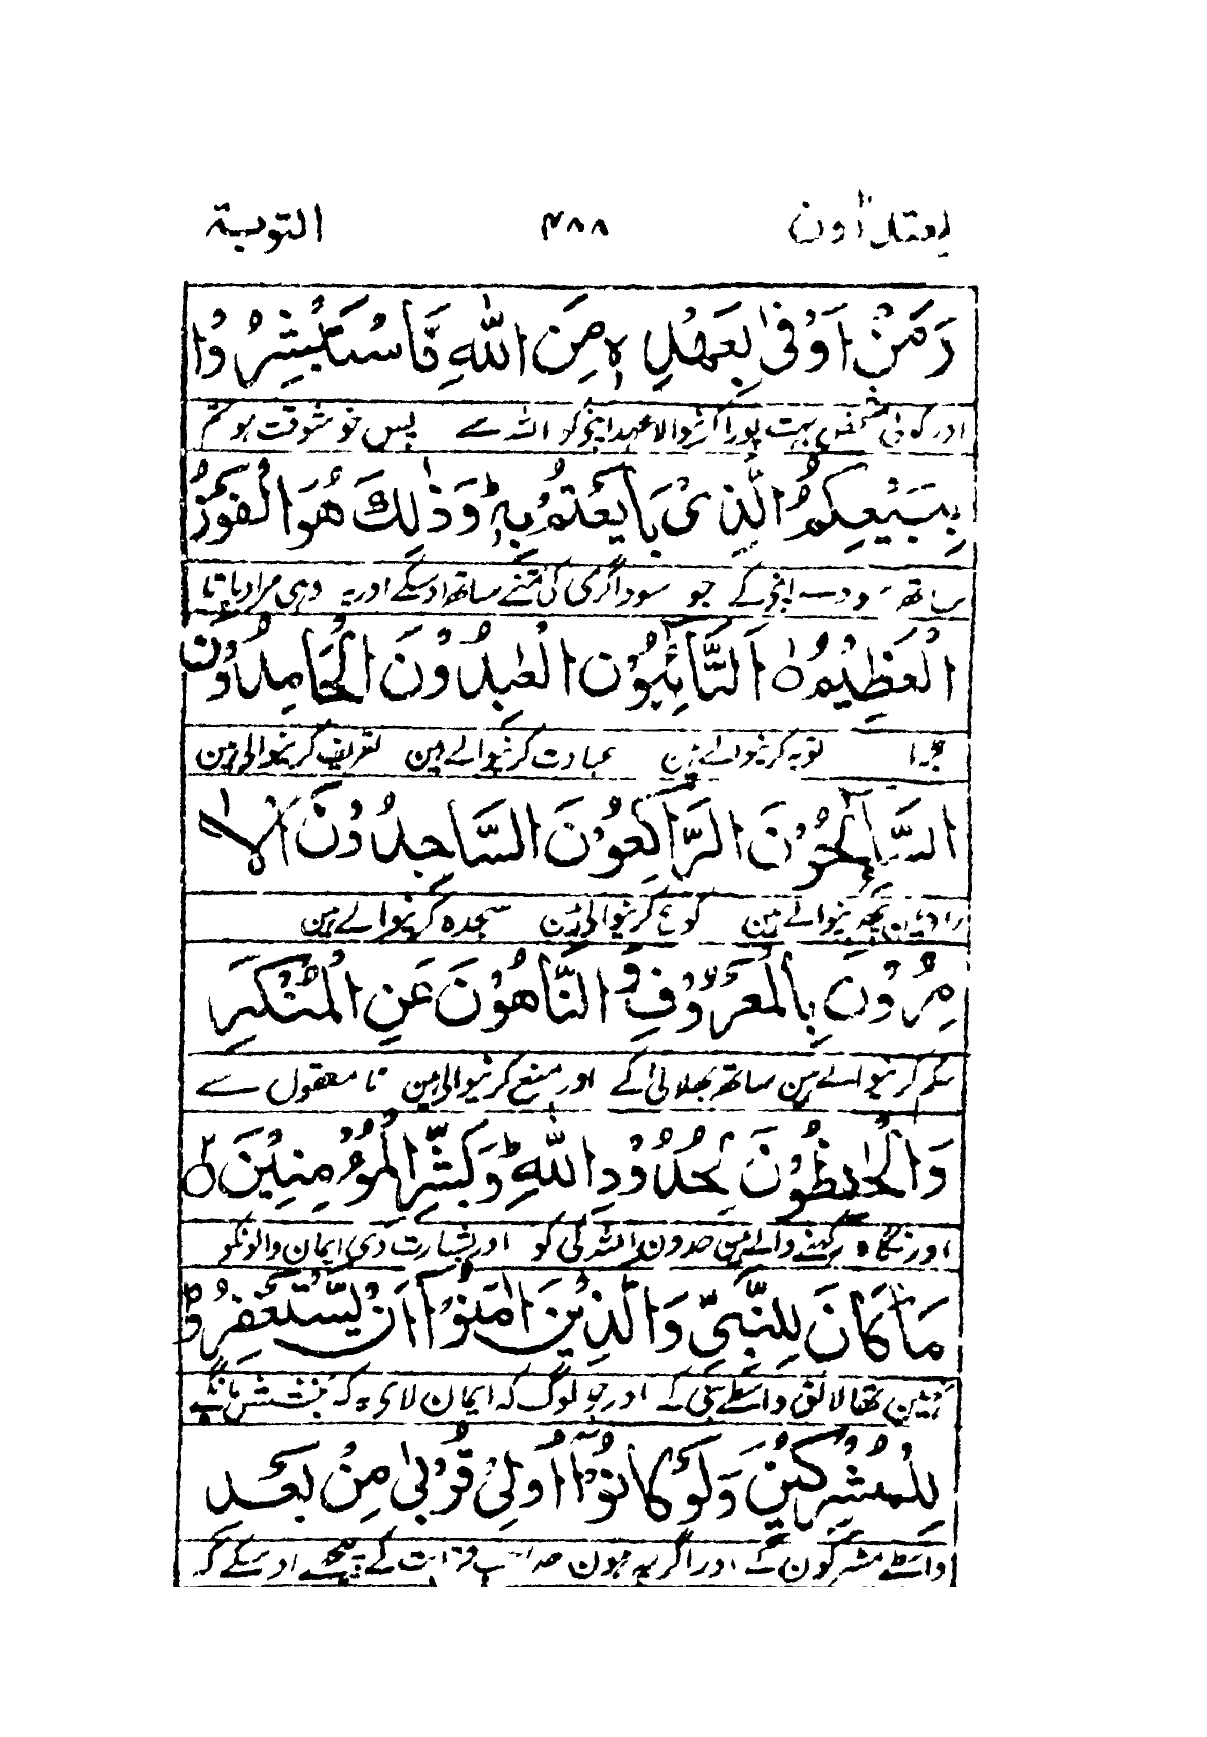 یعتذرون ۴۸۸ التوبة
وَمَنْ اَوْفٰى بِعَهْدِهٖ مِنَ اللّٰهِ فَاسْتَبْشِرُوْا
اور کوئی شخص بہت پورا کرنیوالا عہد اپنیکو اللہ سے پس خوشوقت ہو تم
بِبَيْعِكُمُ الَّذِىْ بَايَعْتُمْ بِهٖ ؕ وَذٰلِكَ هُوَ الْفَوْزُ
ساتھ سودے اپنی کے جو سوداگری کی تمنے ساتھ اوسکے اور یہ وہی مراد پانا
الْعَظِيْمُ ۝ اَلتَّآئِبُوْنَ الْعٰبِدُوْنَ الْحَامِدُوْنَ
بڑا توبہ کرنیوالے ہین عبادت کرنیوالے ہین تعریف کرنیوالی ہین
السَّآئِحُوْنَ الرَّاكِعُوْنَ السَّاجِدُوْنَ الْاٰ
پھرنیوالے ہین رکوع کرنیوالی ہین سجدہ کرنیوالے ہین
مِرُوْنَ بِالْمَعْرُوْفِ وَ النَّاهُوْنَ عَنِ الْمُنْكَرِ
حکم کرنیوالے ہین ساتھ بھلائی کے اور منع کرنیوالی ہین نا معقول سے
وَالْحٰفِظُوْنَ لِحُدُوْدِ اللّٰهِ ؕ وَبَشِّرِ الْمُؤْمِنِيْنَ ۝
اور نگاہ رکھنے والے ہین حدون اللہ کی کو اور بشارت دی ایمان والونکو
مَا كَانَ لِلنَّبِىِّ وَالَّذِيْنَ اٰمَنُوْۤا اَنْ يَّسْتَغْفِرُوْا
نہین تھا لائق واسطے نبی کے اور جو لوگ کہ ایمان لائی یہ کہ بخشش مانگے
لِلْمُشْرِكِيْنَ وَلَوْ كَانُوْۤا اُولِىْ قُرْبٰى مِنْۢ بَعْدِ
واسطے مشرکون کے اور اگرچہ ہون صاحب قرابت کے پیچھے اوسکے کہ